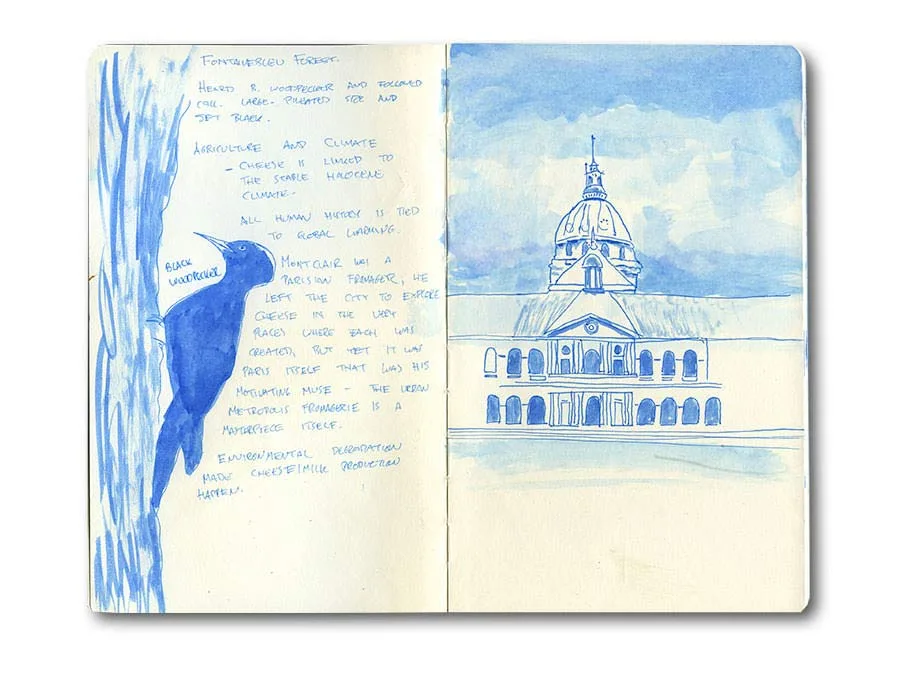 FONTAINEBLEU FOREST.
HEARD B. WOODPECKER AND FOLLOWED
CALL. LARGE - PILEATED SIZE AND
JET BLACK.
AGRICULTURE AND CLIMATE
- CHEESE IS LINKED TO
THE STABLE HOLOCENE
CLIMATE.
ALL HUMAN HISTORY IS TIED
TO GLOBAL WARMING.
BLACK
WOODPECKER
MONTCLAIR WAS A
PARISIAN FROMAGER, HE
LEFT THE CITY TO EXPLORE
CHEESE IN THE VERY
PLACES WHERE EACH WAS
CREATED, BUT YET IT WAS
PARIS ITSELF THAT WAS HIS
MOTIVATING MUSE - THE URBAN
METROPOLIS FROMAGERIE IS A
MASTERPIECE ITSELF.
ENVIRONMENTAL DEGRADATION
MADE CHEESE/MILK PRODUCTION
HAPPEN.